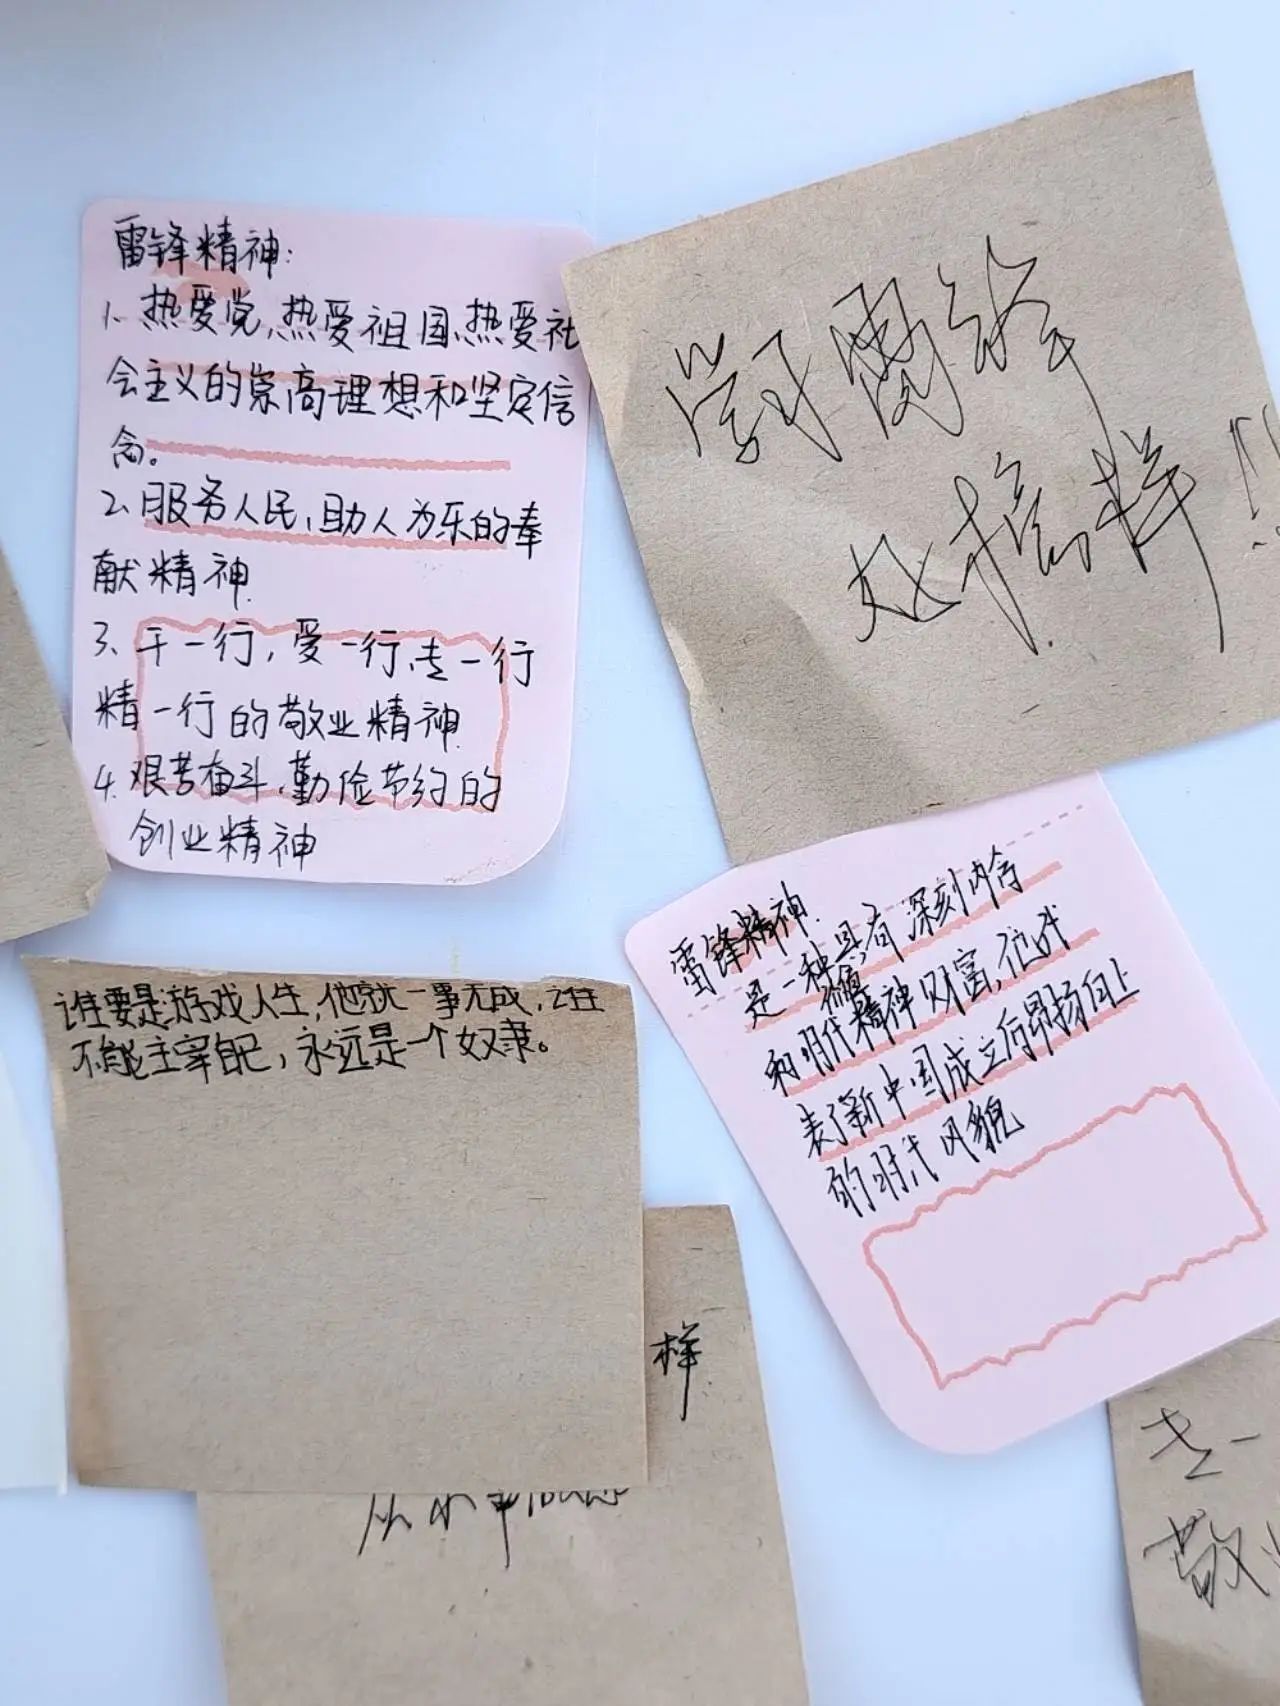 雷锋精神:
1. 热爱党,热爱祖国、热爱社
会主义的崇高理想和坚定信
念。
2、服务人民,助人为乐的奉
献精神
3、干一行,爱一行、专一行
精一行的敬业精神
4. 艰苦奋斗、勤俭节约的
创业精神
学习雷锋
好榜样!!
谁要是游戏人生,他就一事无成,谁
不能主宰自己,永远是一个奴隶。
雷锋精神
是一种具有深刻内含
和时代精神财富,他代
表了新中国成立后昂扬向上
的时代风貌
样
从小事做起
专一
敬业